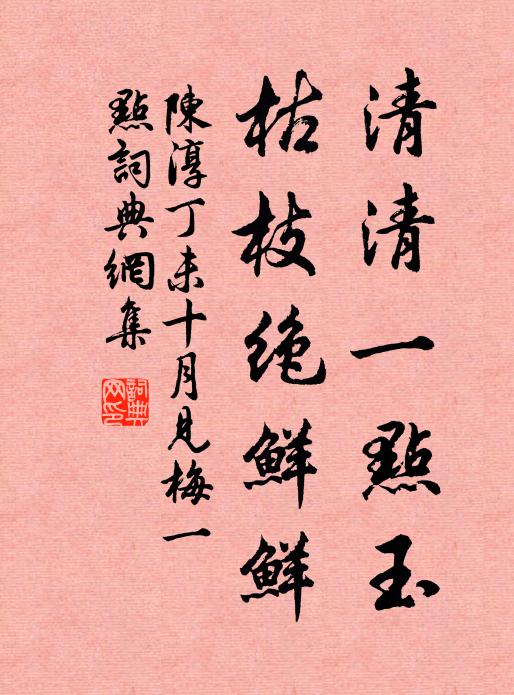 清清一點玉
枯枝絶鮮鮮
陳淳丁未十月見梅一
點詞典網集
詞典
网印